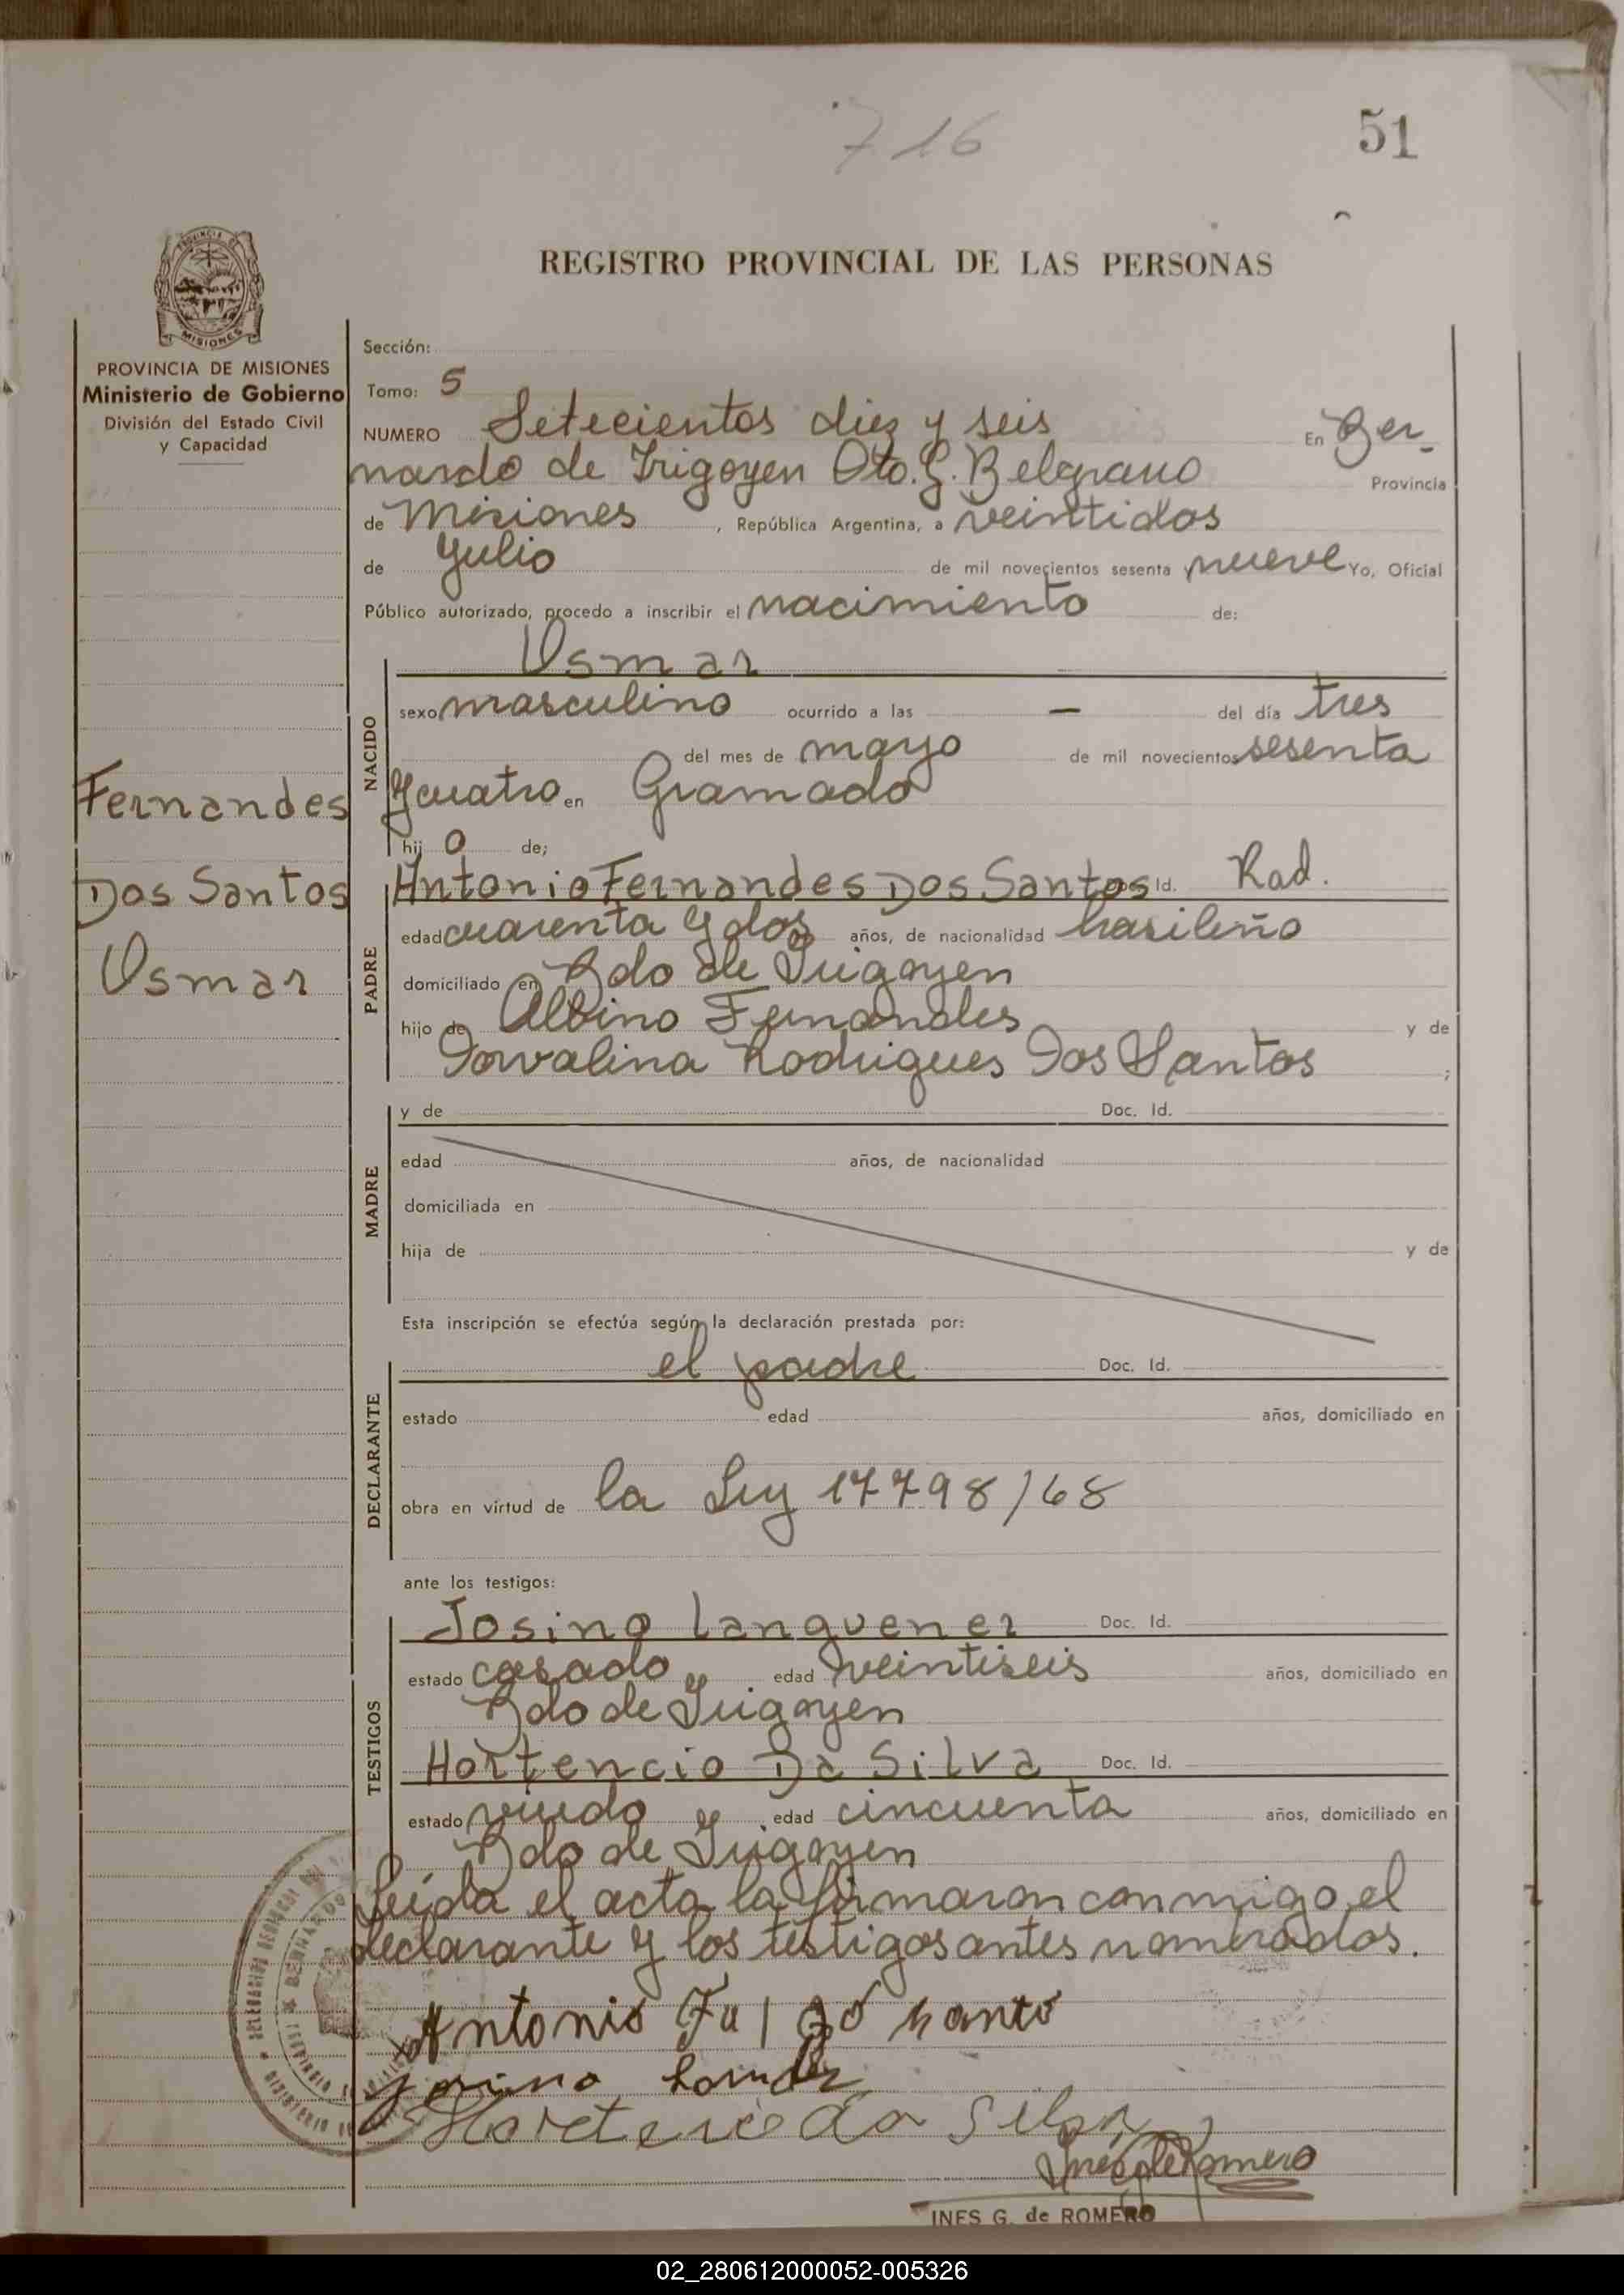 716
51
REGISTRO PROVINCIAL DE LAS PERSONAS
PROVINCIA DE
MISIONES
PROVINCIA DE MISIONES
Ministerio de Gobierno
División del Estado Civil
y Capacidad
Sección:
Tomo: 5
NUMERO Setecientos diez y seis En Ber-
nardo de Irigoyen Dto. G. Belgrano Provincia
de Misiones, República Argentina, a veintidos
de Julio de mil novecientos sesenta nueve Yo, Oficial
Público autorizado, procedo a inscribir el nacimiento de:
NACIDO
Osmar
sexo masculino ocurrido a las — del día tres
del mes de mayo de mil novecientos sesenta
y cuatro en Gramado
hijo de;
Fernandes
Dos Santos
Osmar
PADRE
Antonio Fernandes Dos Santos Id. Rad.
edad cuarenta y dos años, de nacionalidad brasileño
domiciliado en Bdo de Irigoyen
hijo de Albino Fernandes y de
Dorvalina Rodrigues Dos Santos ;
MADRE
y de Doc. Id.
edad años, de nacionalidad
domiciliada en
hija de y de
Esta inscripción se efectúa según la declaración prestada por:
DECLARANTE
el padre Doc. Id.
estado edad años, domiciliado en
obra en virtud de la Ley 17798/68
ante los testigos:
TESTIGOS
Josino Languener Doc. Id.
estado casado edad veintiseis años, domiciliado en
Bdo de Irigoyen
Hortencio Da Silva Doc. Id.
estado viudo edad cincuenta años, domiciliado en
Bdo de Irigoyen
Leida el acta la firmaron conmigo el
declarante y los testigos antes nombrados.
Antonio
da Silva
INES G. de ROMERO
02_280612000052-005326